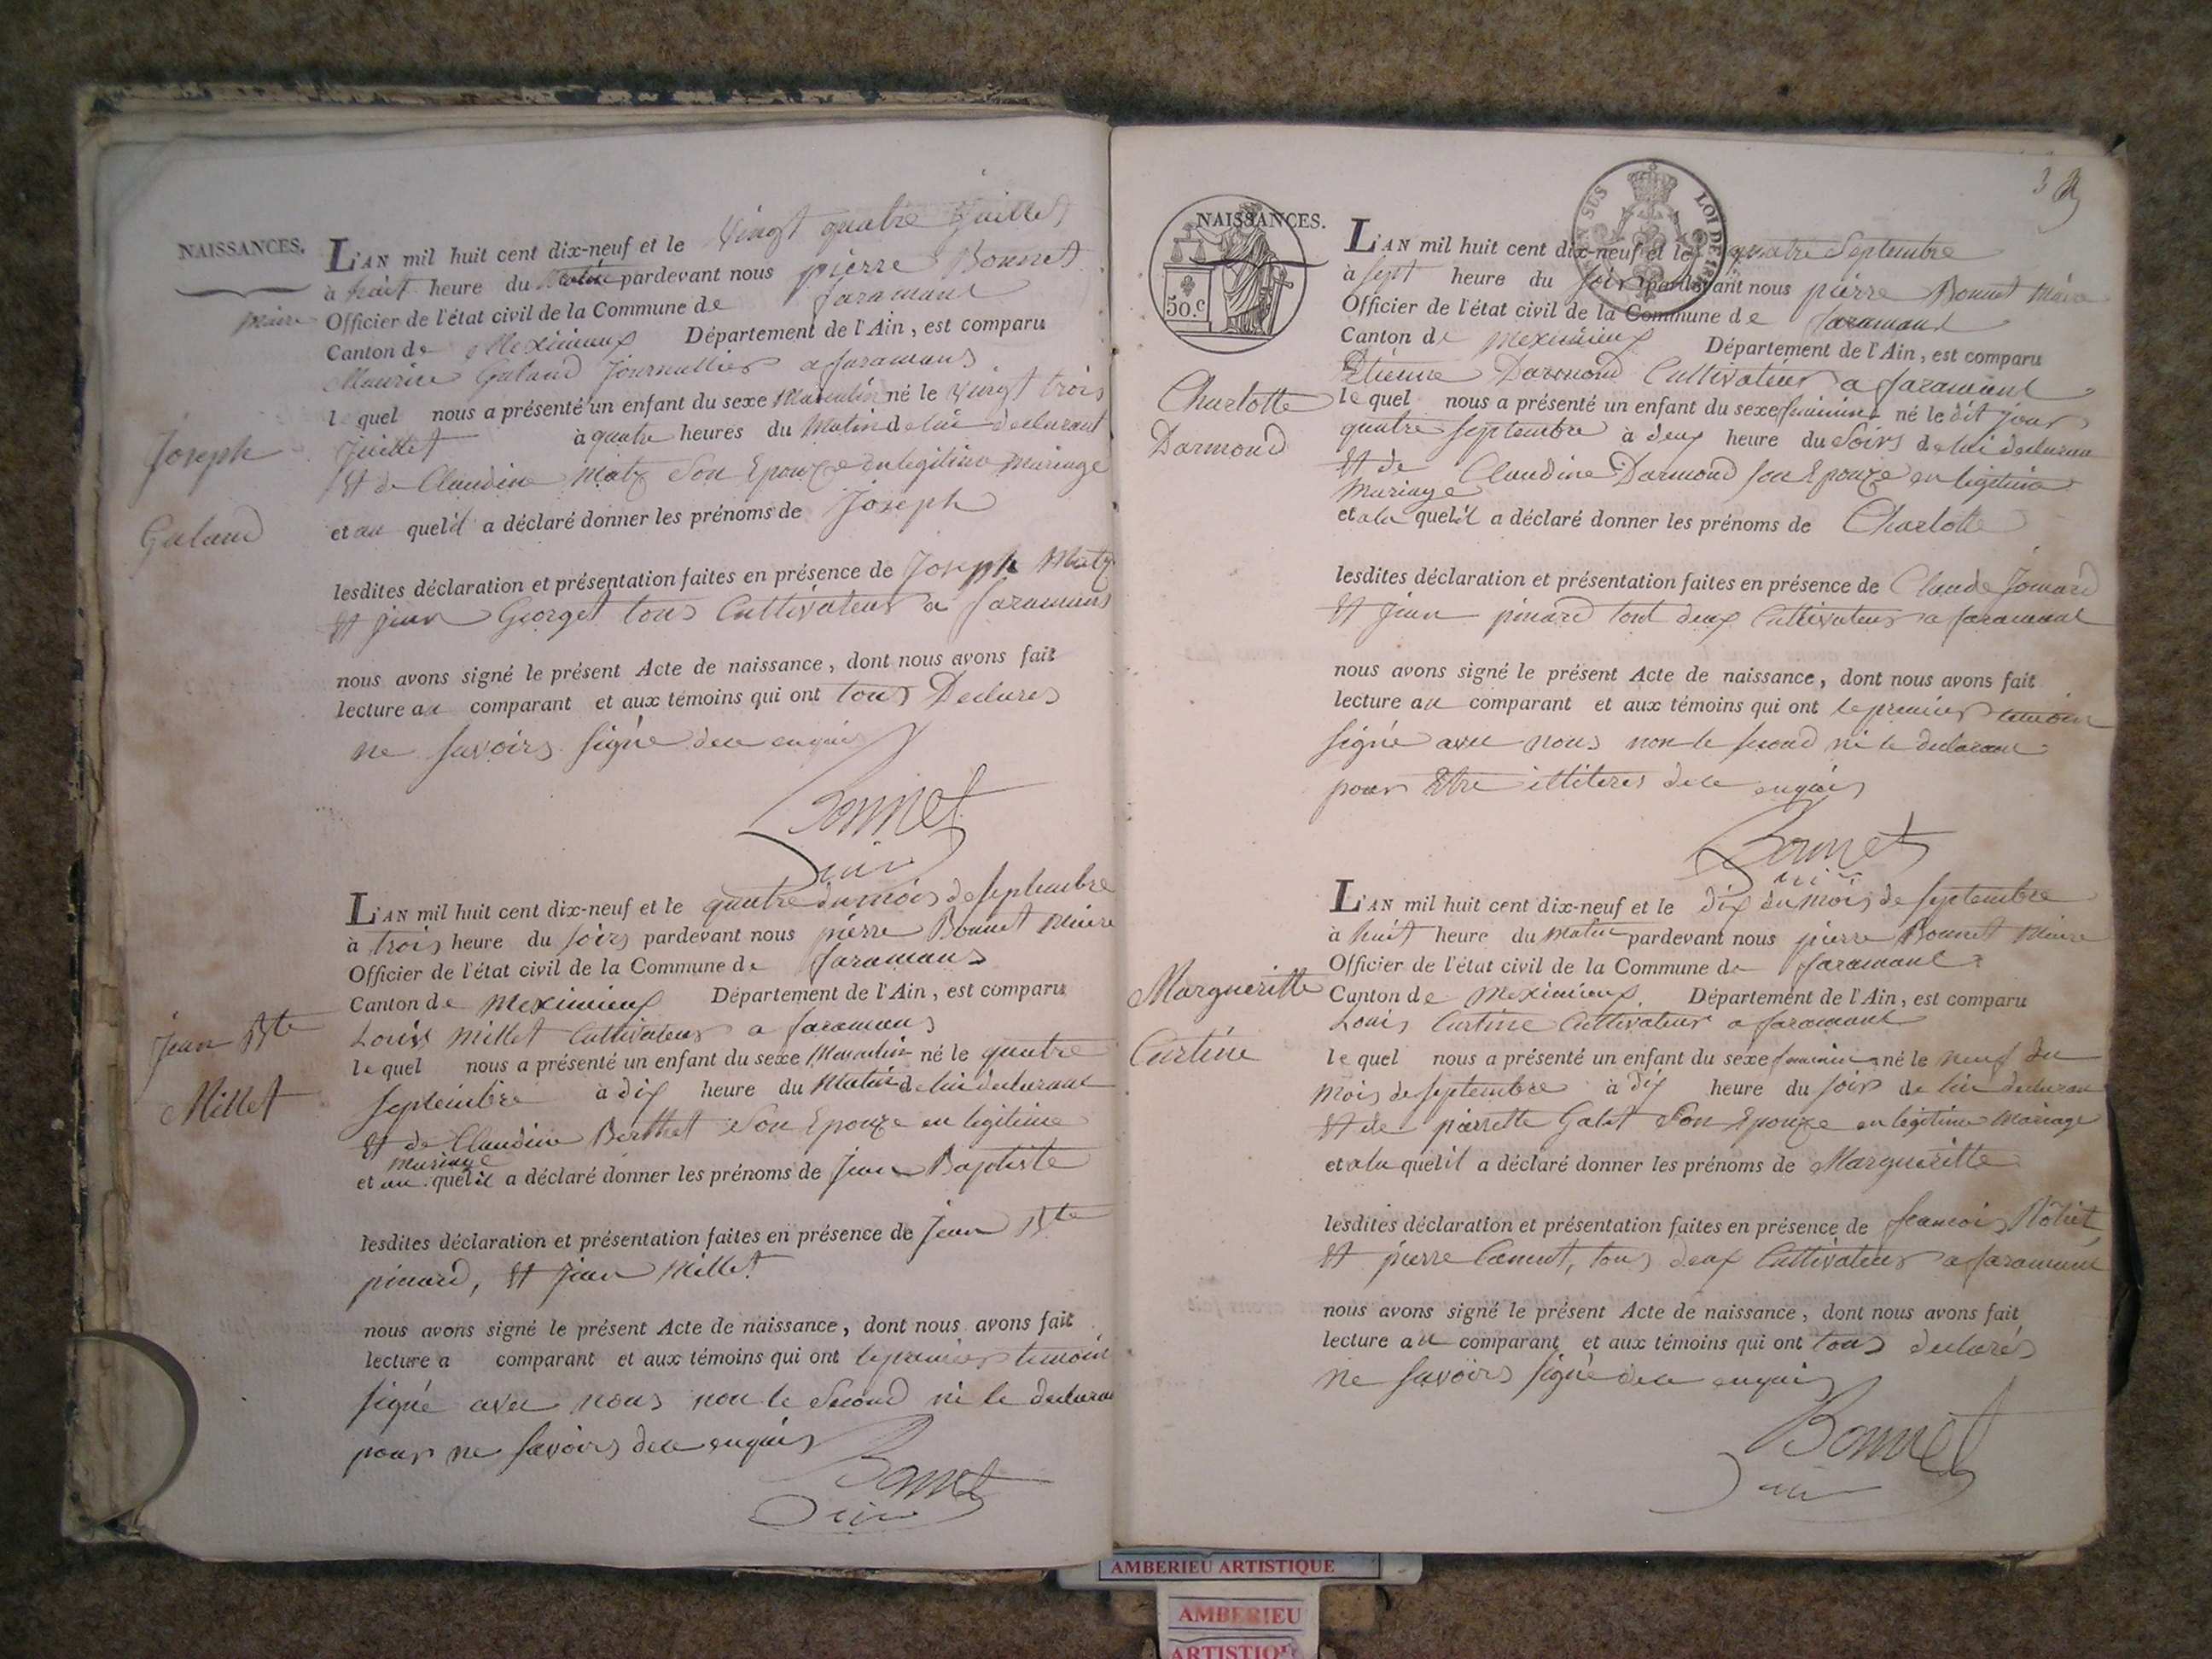 NAISSANCES.
L'AN mil huit cent dix-neuf et le Vingt quatre Juillet
à huit heure du Matin pardevant nous pierre Bonnet
Maire Officier de l'état civil de la Commune de faramant
Canton de Meximieux Département de l'Ain, est comparu
Maurice Galand Journallier a faramans
lequel nous a présenté un enfant du sexe Masculin né le vingt trois
Juillet à quatre heures du Matin de lui declarant
Et de Claudine Matz Son Epouze en legitime Mariage
et au quel il a déclaré donner les prénoms de Joseph
Joseph
Galand
lesdites déclaration et présentation faites en présence de Joseph Matz
Et jean Georget tous Cultivateur a faramans
nous avons signé le présent Acte de naissance, dont nous avons fait
lecture au comparant et aux témoins qui ont tous Declares
ne savoirs signé de ce enquis
Bonnet
L'AN mil huit cent dix-neuf et le quatre du mois de septembre
à trois heure du soirs pardevant nous pierre Bonnet Maire
Officier de l'état civil de la Commune de faramans
Canton de Meximieux Département de l'Ain, est comparu
Louis Millet Cultivateur a faramans
lequel nous a présenté un enfant du sexe Masculin né le quatre
septembre à dix heure du Matin de lui declarant
Et de Claudine Berthet Son Epouze en legitime
Mariage
et au quel il a déclaré donner les prénoms de Jean Baptiste
Jean Bte
Millet
lesdites déclaration et présentation faites en présence de Jean Bte
pinard, Et Jean Millet
nous avons signé le présent Acte de naissance, dont nous avons fait
lecture a comparant et aux témoins qui ont le premier temoin
signé avec nous non le Second ni le declaran
pour ne savoirs de ce enquis
Bonnet
3
NAISSANCES.
50.c
LOI DE
L'AN mil huit cent dix-neuf et le quatre Septembre
à sept heure du soir pardevant nous pierre Bonnet Maire
Officier de l'état civil de la Commune de faramant
Canton de Meximieux Département de l'Ain, est comparu
Etienne Darmond Cultivateur a faramant
lequel nous a présenté un enfant du sexe feminin né le dit jour
quatre septembre à deux heure du Soirs de lui declaran
Et de Claudine Darmond son Epouze en legitime
Mariage
et a la quel il a déclaré donner les prénoms de Charlotte
Charlotte
Darmond
lesdites déclaration et présentation faites en présence de Claude Jomard
Et Jean pinard tout deux Cultivateur a faramant
nous avons signé le présent Acte de naissance, dont nous avons fait
lecture au comparant et aux témoins qui ont le premier temoin
signé avec nous non le second ni le declarant
pour Etre illiteres de ce enquis
Bonnet
L'AN mil huit cent dix-neuf et le dix du mois de septembre
à huit heure du Matin pardevant nous pierre Bonnet Maire
Officier de l'état civil de la Commune de faramant
Canton de Meximieux Département de l'Ain, est comparu
Louis Curtine Cultivateur a faramant
lequel nous a présenté un enfant du sexe feminin né le neuf du
mois de septembre à dix heure du soir de lui declaran
Et de pierrette Galet Son Epouze en legitime Mariage
et a la quel il a déclaré donner les prénoms de Margueritte
Margueritte
Curtine
lesdites déclaration et présentation faites en présence de francois
Et pierre Camut, tous deux Cultivateur a faramant
nous avons signé le présent Acte de naissance, dont nous avons fait
lecture au comparant et aux témoins qui ont tous declarés
ne savoirs signé de ce enquis
Bonnet
AMBERIEU ARTISTIQUE
AMBERIEU
ARTISTIQUE